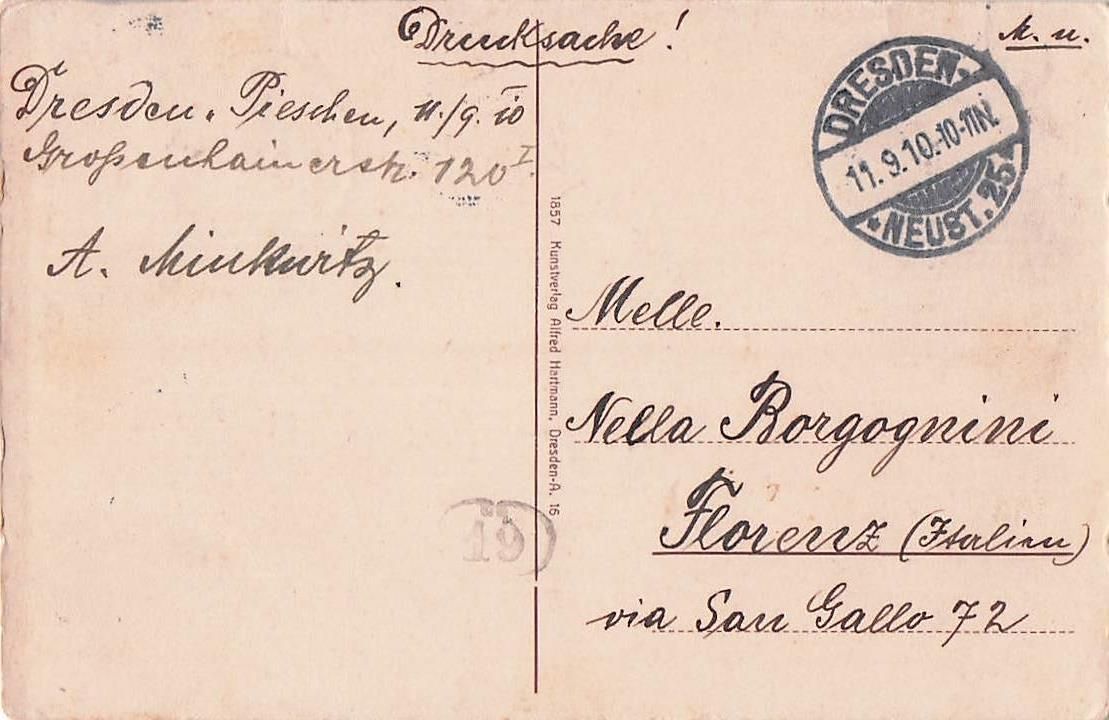 Drucksache!
M. u.
Dresden-Pieschen, 11./9. 10
Großenhainerstr. 120 I.
A. Minkwitz.
DRESDEN-
11.9.10.10-11N.
*NEUST.25
1857 Kunstverlag Alfred Hartmann, Dresden-A. 16
Melle.
Nella Borgognini
Florenz (Italien)
via San Gallo 72
19